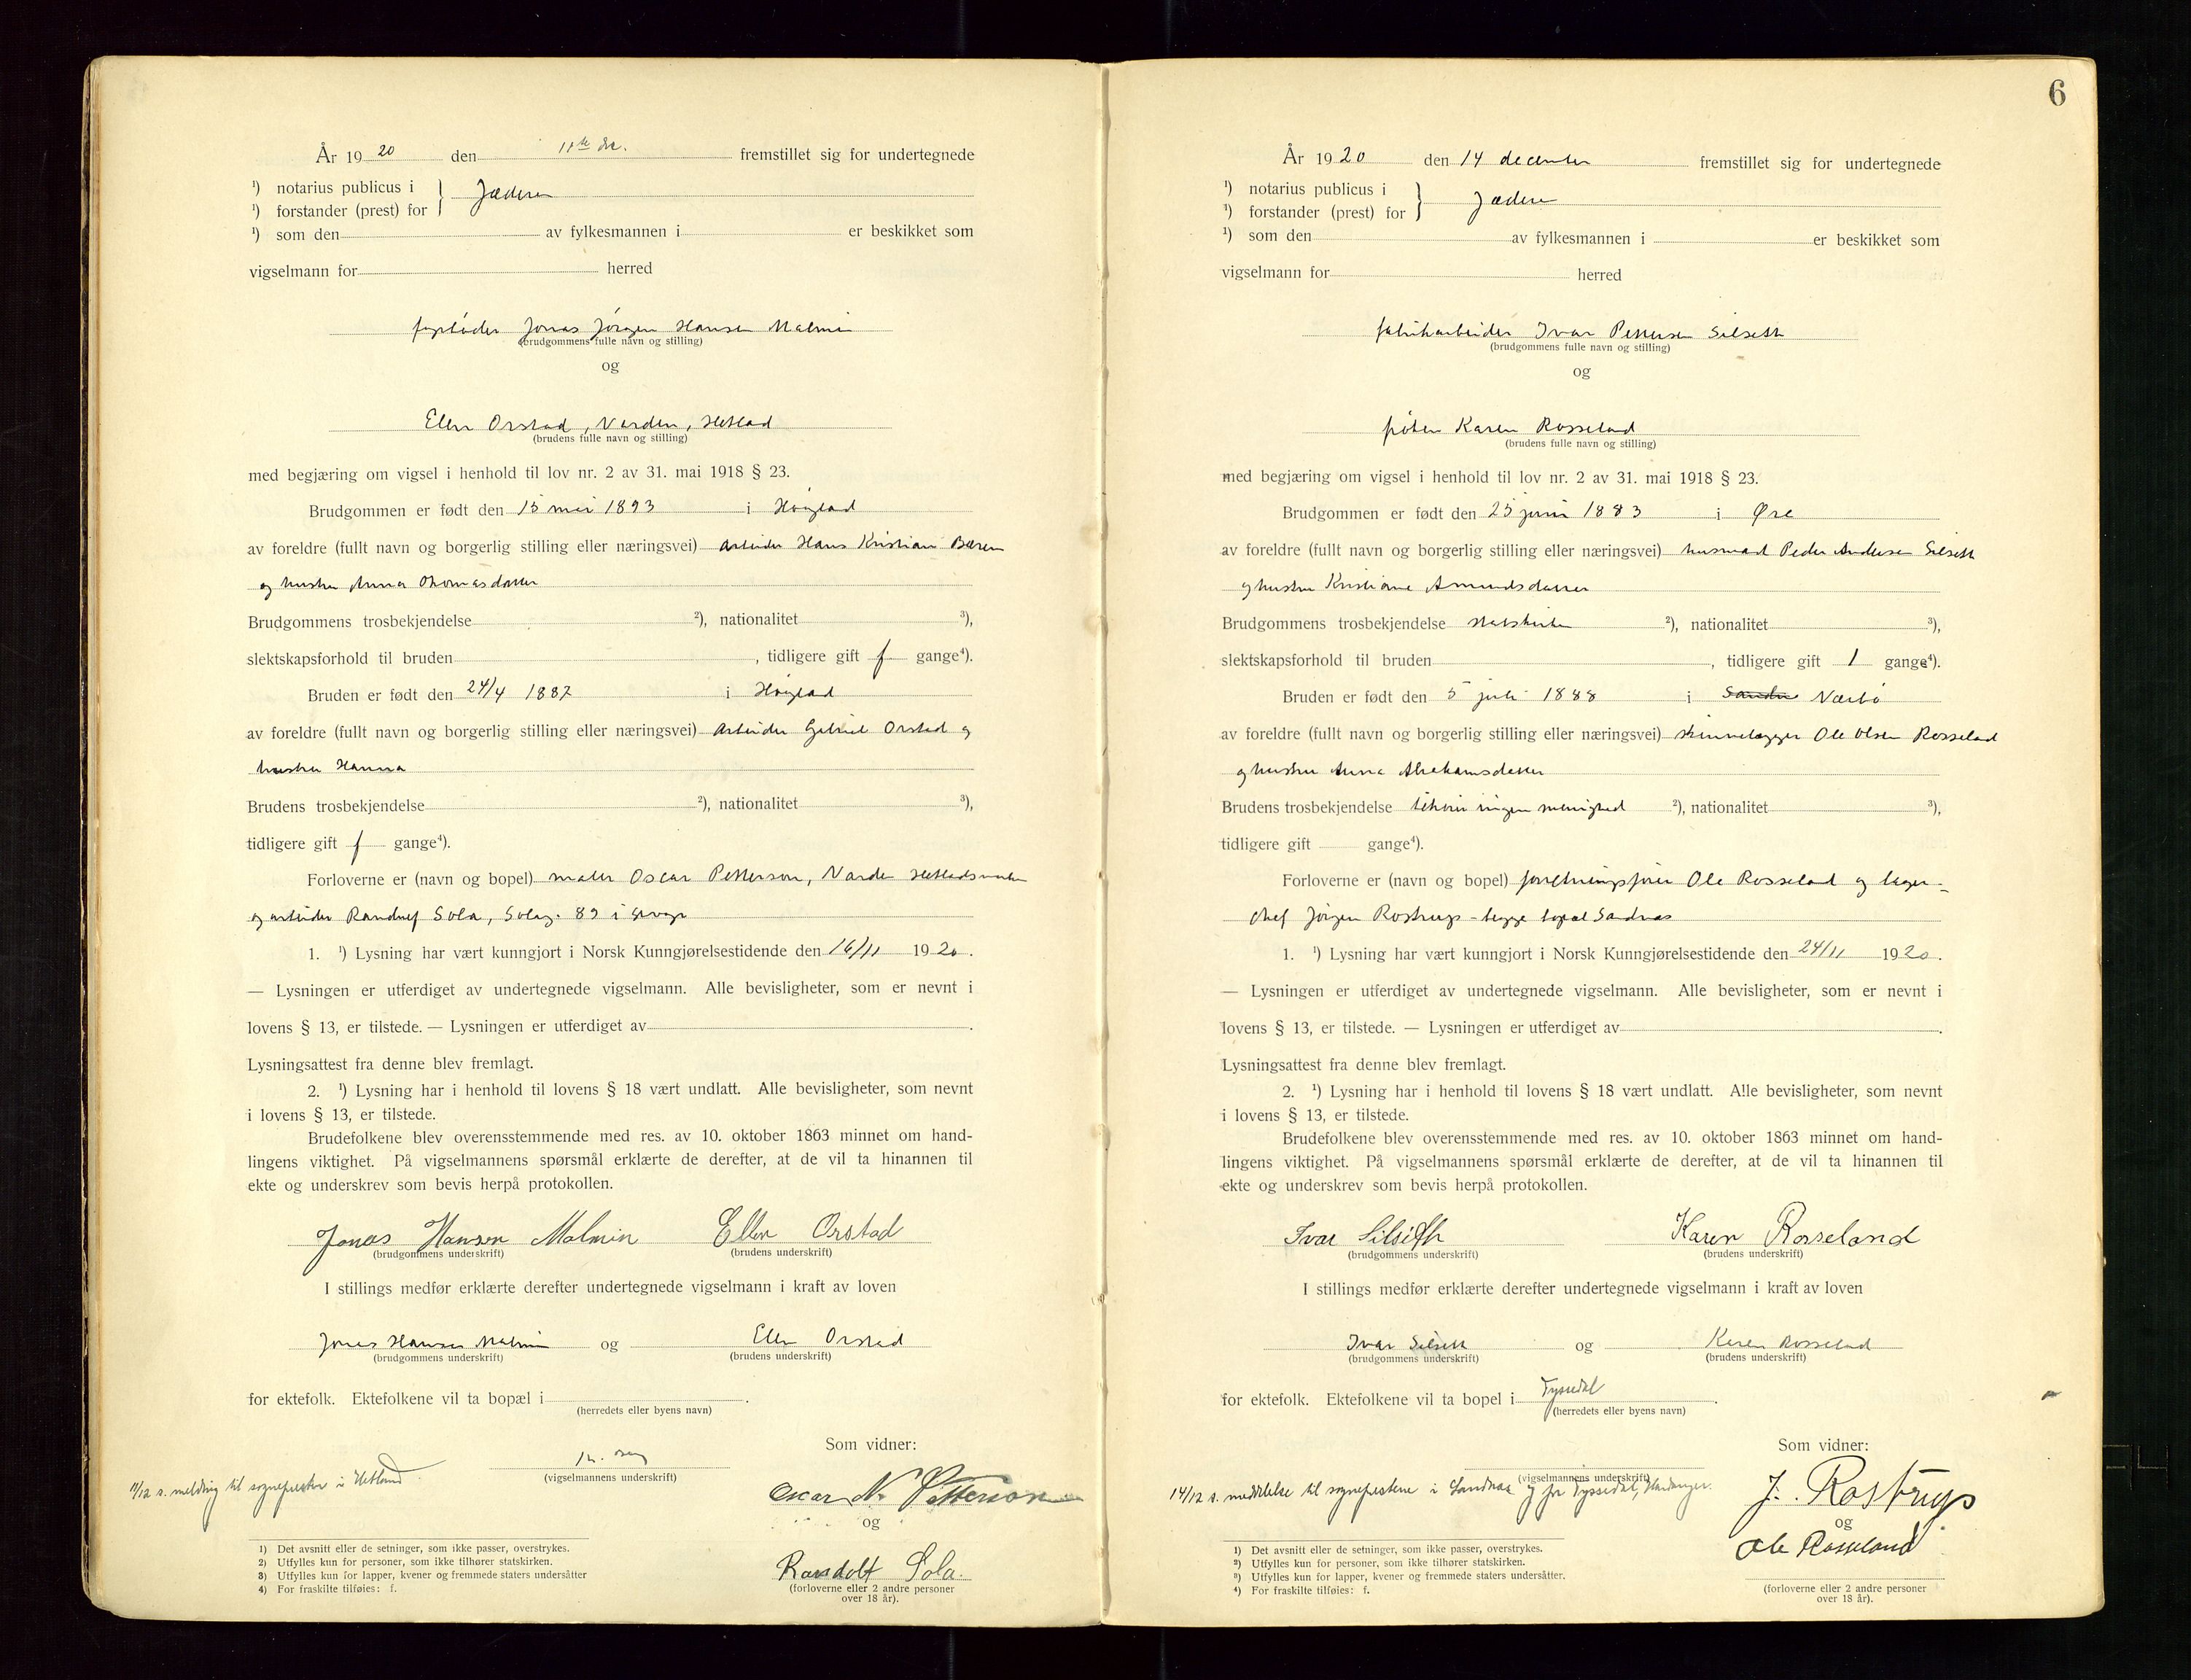 År 1920 den 11te dec. fremstillet sig for undertegnede
¹) notarius publicus i } Jæderen
¹) forstander (prest) for
¹) som den av fylkesmannen i er beskikket som
vigselmann for herred
Jonas Jörgen Hansen Malmin
(brudgommens fulle navn og stilling)
og
Ellen Orstad, Varden, Hetland
(brudens fulle navn og stilling)
med begjæring om vigsel i henhold til lov nr. 2 av 31. mai 1918 § 23.
Brudgommen er født den 15 mai 1893 i Høyland
av foreldre (fullt navn og borgerlig stilling eller næringsvei) arbeider Hans Kristian
og hustru Anna Thomasdatter
Brudgommens trosbekjendelse ²), nationalitet ³),
slektskapsforhold til bruden , tidligere gift f gange⁴).
Bruden er født den 24/4 1887 i Høyland
av foreldre (fullt navn og borgerlig stilling eller næringsvei) arbeider Gabriel Orstad og
hustru Hanna
Brudens trosbekjendelse ²), nationalitet ³),
tidligere gift f gange⁴).
Forloverne er (navn og bopel) maler Oscar Petterson, Varden Hetlandsmarken
og arbeider Randulf Sola, Solag. 89 i Stvgr
1. ¹) Lysning har vært kunngjort i Norsk Kunngjørelsestidende den 16/11 1920.
— Lysningen er utferdiget av undertegnede vigselmann. Alle bevisligheter, som er nevnt i
lovens § 13, er tilstede. — Lysningen er utferdiget av .
Lysningsattest fra denne blev fremlagt.
2. ¹) Lysning har i henhold til lovens § 18 vært undlatt. Alle bevisligheter, som nevnt
i lovens § 13, er tilstede.
Brudefolkene blev overensstemmende med res. av 10. oktober 1863 minnet om hand-
lingens viktighet. På vigselmannens spørsmål erklærte de derefter, at de vil ta hinannen til
ekte og underskrev som bevis herpå protokollen.
Jonas Hansen Malmin Ellen Orstad
(brudgommens underskrift) (brudens underskrift)
I stillings medfør erklærte derefter undertegnede vigselmann i kraft av loven
Jonas Hansen Malmin og Ellen Orstad
(brudgommens underskrift) (brudens underskrift)
for ektefolk. Ektefolkene vil ta bopæl i .
(herredets eller byens navn)
Som vidner:
(vigselmannens underskrift)
11/12 s. melding til sognepresten i Hetland
Oscar N. Petterson
og
Randolf Sola.
(forloverne eller 2 andre personer
over 18 år).
1) Det avsnitt eller de setninger, som ikke passer, overstrykes.
2) Utfylles kun for personer, som ikke tilhører statskirken.
3) Utfylles kun for lapper, kvener og fremmede staters undersåtter
4) For fraskilte tilføies: f.
6
År 1920 den 14 december fremstillet sig for undertegnede
¹) notarius publicus i } Jæderen
¹) forstander (prest) for
¹) som den av fylkesmannen i er beskikket som
vigselmann for herred
fabrikarbeider Ivar Pettersen Silseth
(brudgommens fulle navn og stilling)
og
frøken Karen Rosseland
(brudens fulle navn og stilling)
med begjæring om vigsel i henhold til lov nr. 2 av 31. mai 1918 § 23.
Brudgommen er født den 25 juni 1883 i Øre
av foreldre (fullt navn og borgerlig stilling eller næringsvei) husmand Peder Andersen Silseth
og hustru Kristiane Amundsdatter
Brudgommens trosbekjendelse statskirken ²), nationalitet ³),
slektskapsforhold til bruden , tidligere gift 1 gange⁴).
Bruden er født den 5 juli 1888 i Sandnes Nærbö
av foreldre (fullt navn og borgerlig stilling eller næringsvei) skinnelægger Ole Olsen Rosseland
og hustru Anna Abrahamsdatter
Brudens trosbekjendelse tilhører ingen menighed ²), nationalitet ³),
tidligere gift gange⁴).
Forloverne er (navn og bopel) forretningsfører Ole Rosseland og lager-
chef Jørgen Rostrup - begge bopæl Sandnæs
1. ¹) Lysning har vært kunngjort i Norsk Kunngjørelsestidende den 24/11 1920.
— Lysningen er utferdiget av undertegnede vigselmann. Alle bevisligheter, som er nevnt i
lovens § 13, er tilstede. — Lysningen er utferdiget av .
Lysningsattest fra denne blev fremlagt.
2. ¹) Lysning har i henhold til lovens § 18 vært undlatt. Alle bevisligheter, som nevnt
i lovens § 13, er tilstede.
Brudefolkene blev overensstemmende med res. av 10. oktober 1863 minnet om hand-
lingens viktighet. På vigselmannens spørsmål erklærte de derefter, at de vil ta hinannen til
ekte og underskrev som bevis herpå protokollen.
Ivar Silseth Karen Rosseland
(brudgommens underskrift) (brudens underskrift)
I stillings medfør erklærte derefter undertegnede vigselmann i kraft av loven
Ivar Silseth og Karen Rosseland
(brudgommens underskrift) (brudens underskrift)
for ektefolk. Ektefolkene vil ta bopel i Tyssedal .
(herredets eller byens navn)
Som vidner:
(vigselmannens underskrift)
14/12 s. meddelelse til sogneprestene i Sandnæs og for Tyssedal, Hardanger.
J. Rostrup
og
Ole Rosseland
(forloverne eller 2 andre personer
over 18 år).
1) Det avsnitt eller de setninger, som ikke passer, overstrykes.
2) Utfylles kun for personer, som ikke tilhører statskirken.
3) Utfylles kun for lapper, kvener og fremmede staters undersåtter.
4) For fraskilte tilføies: f.